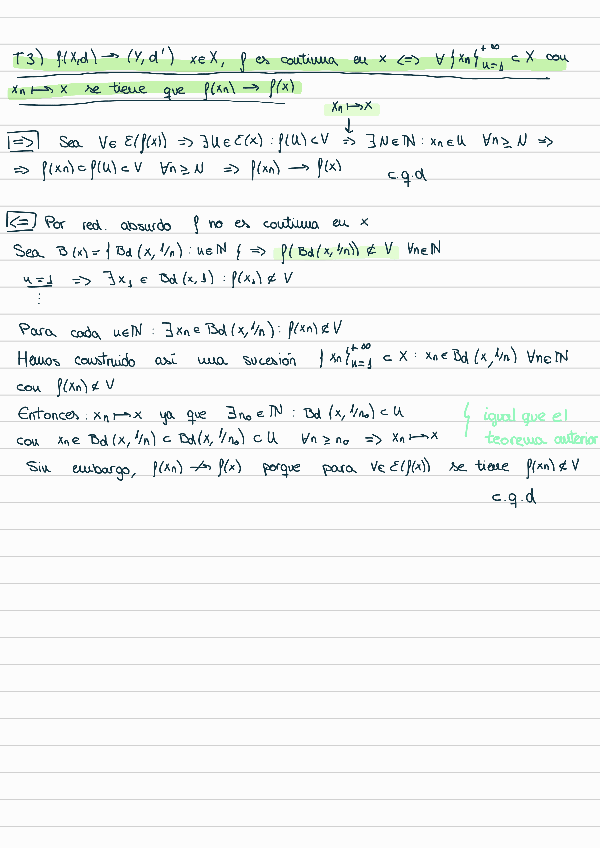 T3) f(X,d) → (Y,d') x∈X, f es continua en x <=> ∀ {xn}_{n=1}^{+∞} ⊂ X con
xn ↦ x se tiene que f(xn) → f(x)
xn ↦ x
↓
=> Sea V∈ Ɛ(f(x)) => ∃U∈Ɛ(x) : f(U)⊂V => ∃N∈ℕ : xn∈U ∀n≥N =>
=> f(xn)⊂f(U)⊂V ∀n≥N => f(xn) → f(x)
c.q.d
<= Por red. absurdo f no es continua en x
Sea B(x)={Bd(x,1/n) : n∈ℕ} => f(Bd(x,1/n)) ⊄ V ∀n∈ℕ
n=1 => ∃x₁ ∈ Bd(x,1) : f(x₁) ∉ V
⋮
Para cada n∈ℕ : ∃xn∈Bd(x,1/n) : f(xn)∉V
Hemos construido así una sucesión {xn}_{n=1}^{+∞} ⊂ X : xn∈Bd(x,1/n) ∀n∈ℕ
con f(xn)∉V
Entonces : xn ↦ x ya que ∃n₀∈ℕ : Bd(x,1/n₀)⊂U
igual que el
con xn∈ Bd(x,1/n) ⊂ Bd(x,1/n₀) ⊂ U ∀n≥n₀ => xn ↦ x
teorema anterior
Sin embargo, f(xn) ↛ f(x) porque para V∈Ɛ(f(x)) se tiene f(xn)∉V
c.q.d